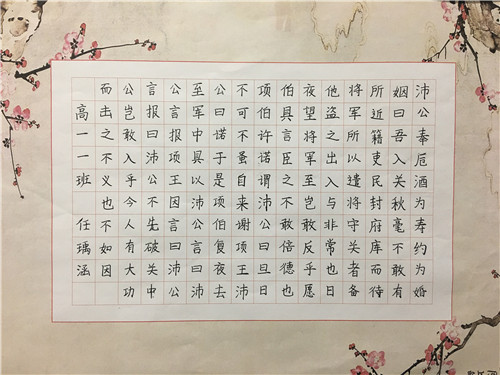 沛公奉卮酒为寿约为婚
姻曰吾入关秋毫不敢有
所近籍吏民封府库而待
将军所以遣将守关者备
他盗之出入与非常也日
夜望将军至岂敢反乎愿
伯具言臣之不敢倍德也
项伯许诺谓沛公曰旦日
不可不蚤自来谢项王沛
公曰诺于是项伯复夜去
至军中具以沛公言曰沛
公言报项王因言曰沛公
言报曰沛公不先破关中
公岂敢入乎今人有大功
而击之不义也不如因
高一一班 任瑀涵